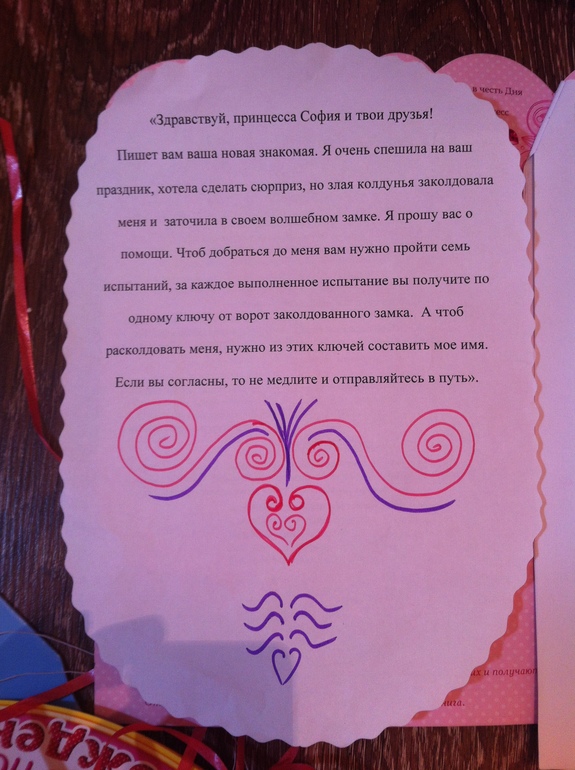 «Здравствуй, принцесса София и твои друзья!
Пишет вам ваша новая знакомая. Я очень спешила на ваш
праздник, хотела сделать сюрприз, но злая колдунья заколдовала
меня и заточила в своем волшебном замке. Я прошу вас о
помощи. Чтоб добраться до меня вам нужно пройти семь
испытаний, за каждое выполненное испытание вы получите по
одному ключу от ворот заколдованного замка. А чтоб
расколдовать меня, нужно из этих ключей составить мое имя.
Если вы согласны, то не медлите и отправляйтесь в путь».
в честь Дня
и получают